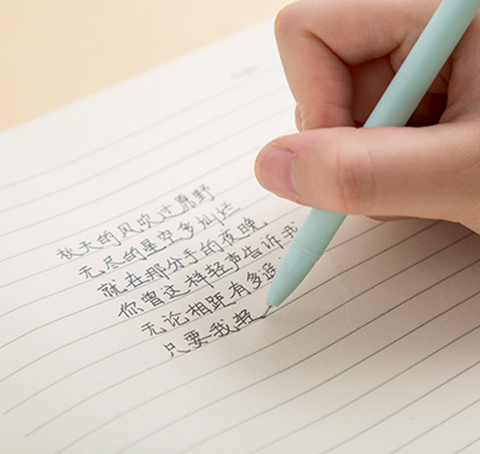 秋天的风吹过原野
无尽的星空多灿烂
就在那分手的夜晚
你曾这样轻声告诉我
无论相距有多遥
只要我